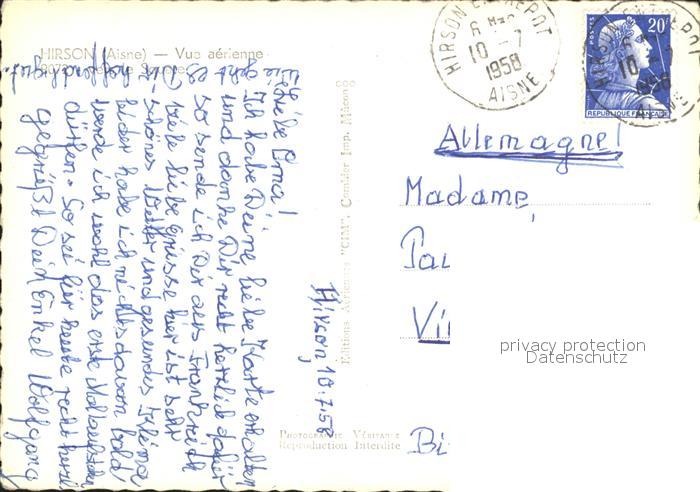 HIRSON (Aisne) — Vue aérienne
HIRSON ENTREPOT
10-7
1958
AISNE
POSTES
20F
REPUBLIQUE FRANÇAISE
Hirson, 10.7.58
Liebe Oma!
Ich habe Deine liebe Karte erhalten
und danke Dir recht herzlich dafür
so sende ich Dir aus Frankreich
viele liebe Grüsse hier ist sehr
schönes Wetter und gesundes Klima
leider habe ich nichts davon bald
werde ich wohl das erste Mal
dürfen. So sei für heute recht herzl.
gegrüßt Dein Enkel Wolfgang
Allemagne!
Madame,
Editions Aériennes "CIM", Combier Imp. Mâcon
PHOTOGRAPHIE VÉRITABLE
Reproduction Interdite
privacy protection
Datenschutz